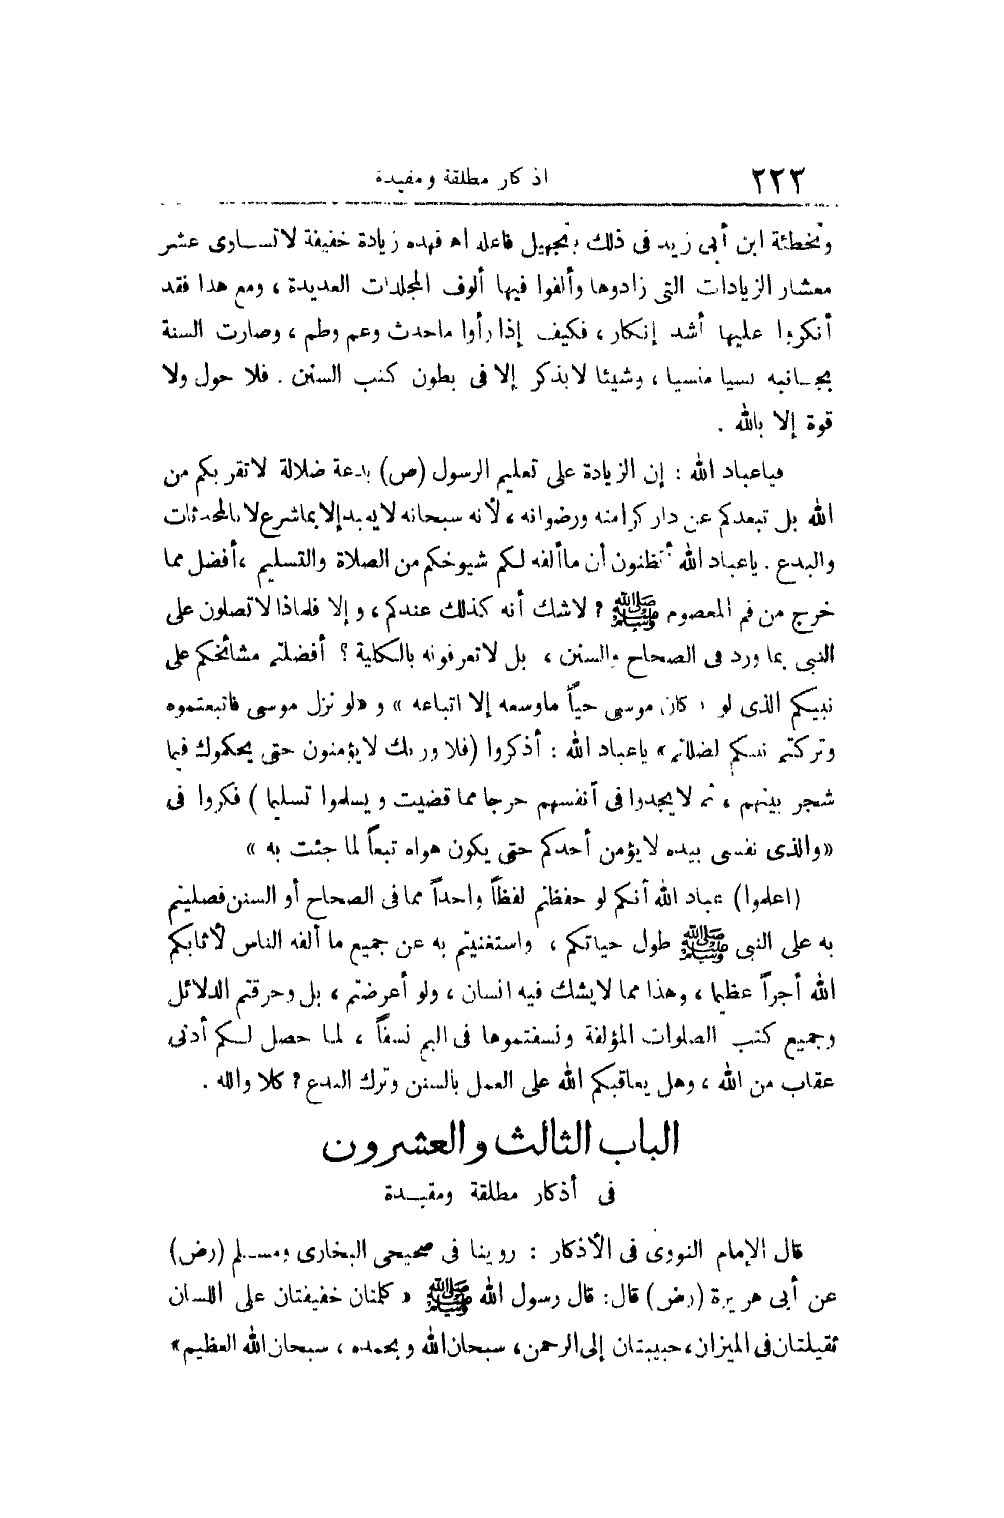 ٢٢٣ اذكار مطلقة ومقيدة
وتخطئة ابن أبى زيد فى ذلك وتجهيل فاعله اه فهذه زيادة خفيفة لا تساوى عشر
معشار الزيادات التى زادوها وألفوا فيها ألوف المجلدات العديدة ، ومع هذا فقد
أنكروا عليها أشد إنكار ، فكيف إذا رأوا ماحدث وعم وطم ، وصارت السنة
بجانبه نسيا منسيا ، وشيئا لا يذكر إلا فى بطون كتب السنن . فلا حول ولا
قوة إلا بالله .
فياعباد الله : إن الزيادة على تعليم الرسول (ص) بدعة ضلالة لا تقربكم من
الله بل تبعدكم عن دار كرامته ورضوانه ، لأنه سبحانه لا يعبد إلا بما شرع لا بالمحدثات
والبدع . ياعباد الله أتظنون أن ماألفه لكم شيوخكم من الصلاة والتسليم ، أفضل مما
خرج من فم المعصوم ﷺ ؟ لاشك أنه كذلك عندكم ، وإلا فلماذا لا تصلون على
النبى بما ورد فى الصحاح والسنن ، بل لا تعرفونه بالكلية ؟ أفضلتم مشائخكم على
نبيكم الذى لو « كان موسى حياً ماوسعه إلا اتباعه » و «لو نزل موسى فاتبعتموه
وتركتم نبيكم لضللتم» ياعباد الله : أذكروا (فلا وربك لا يؤمنون حتى يحكموك فيما
شجر بينهم ، ثم لا يجدوا فى أنفسهم حرجا مما قضيت ويسلموا تسليما ) فكروا فى
«والذى نفسى بيده لا يؤمن أحدكم حتى يكون هواه تبعاً لما جئت به »
(اعلموا) عباد الله أنكم لو حفظتم لفظاً واحداً مما فى الصحاح أو السنن فصليتم
به على النبى ﷺ طول حياتكم ، واستغنيتم به عن جميع ما ألفه الناس لأثابكم
الله أجراً عظيما ، وهذا مما لايشك فيه انسان ، ولو أعرضتم ، بل وحرقتم الدلائل
وجميع كتب الصلوات المؤلفة ونسفتموها فى اليم نسفاً ، لما حصل لكم أدنى
عقاب من الله ، وهل يعاقبكم الله على العمل بالسنن وترك البدع ؟ كلا والله .
الباب الثالث والعشرون
فى أذكار مطلقة ومقيدة
قال الإمام النووى فى الأذكار : روينا فى صحيحى البخارى ومسلم (رض)
عن أبى هريرة (رض) قال: قال رسول الله ﷺ « كلمتان خفيفتان على اللسان
ثقيلتان فى الميزان ، حبيبتان إلى الرحمن، سبحان الله وبحمده ، سبحان الله العظيم»